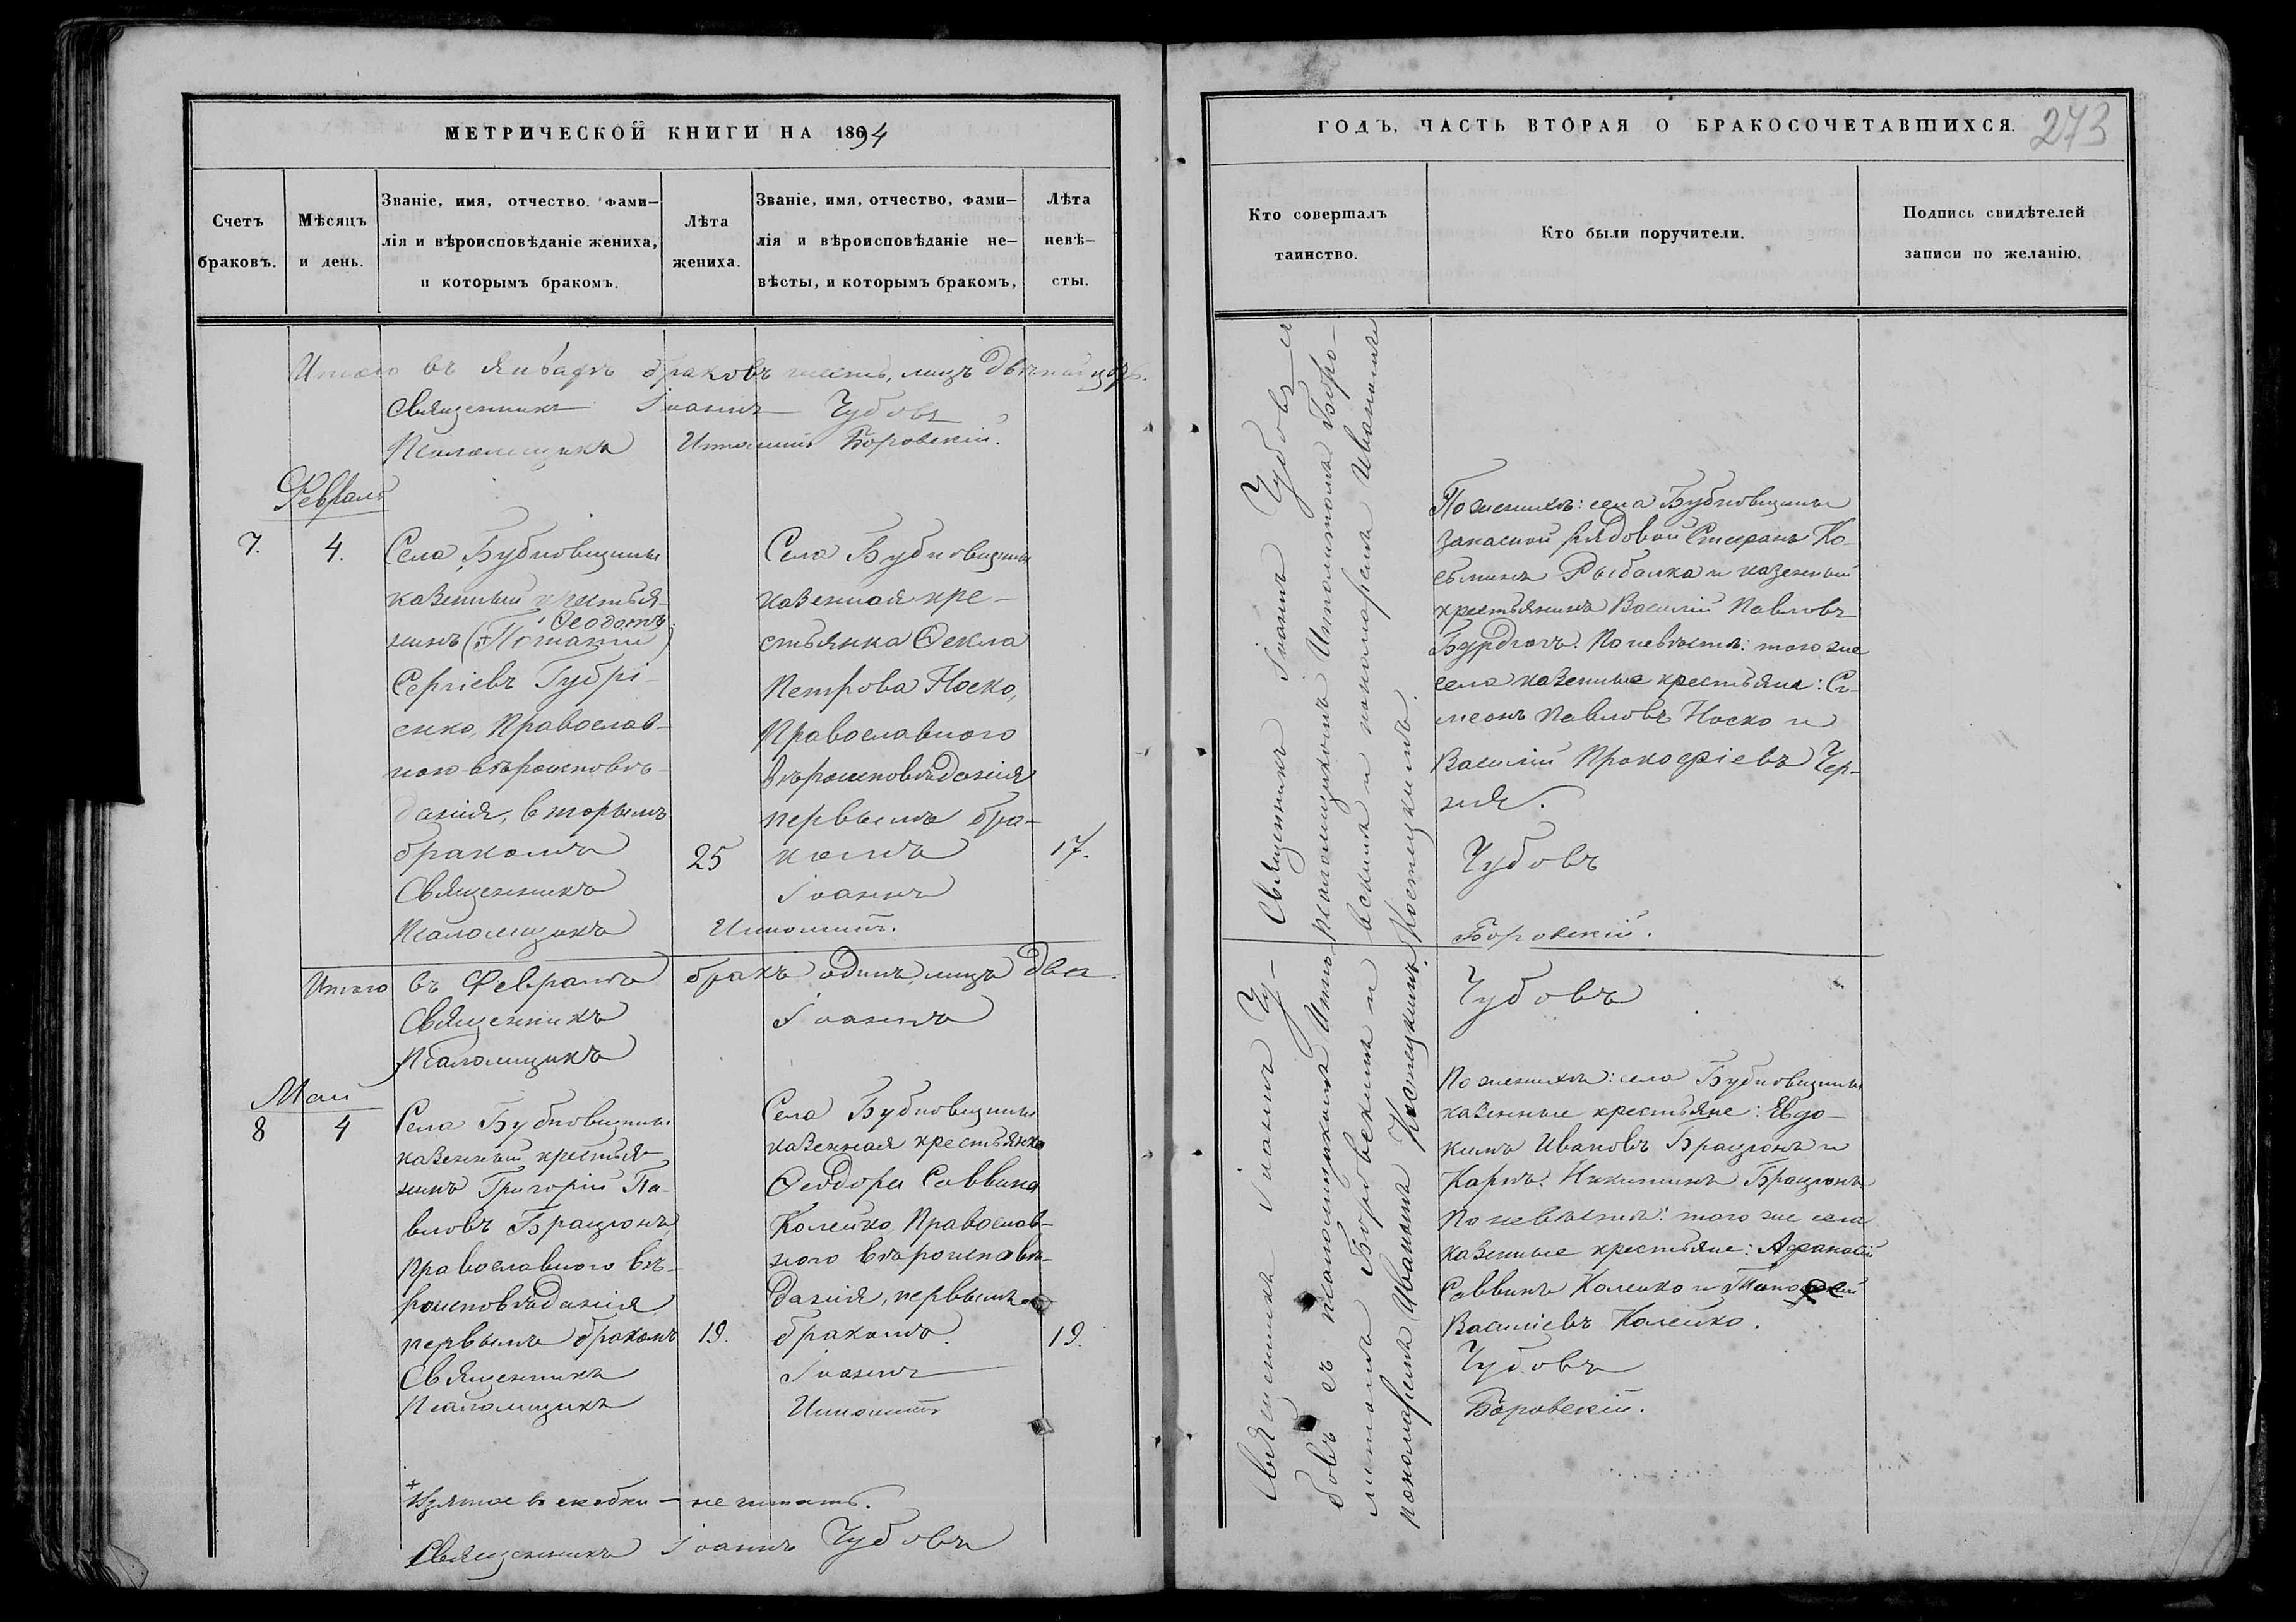 МЕТРИЧЕСКОЙ КНИГИ НА 1894
Счетъ браковъ.
Мѣсяцъ и день.
Званіе, имя, отчество, фами-
лія и вѣроисповѣданіе жениха,
и которымъ бракомъ.
Лѣта жениха.
Званіе, имя, отчество, фами-
лія и вѣроисповѣданіе не-
вѣсты, и которымъ бракомъ,
Лѣта невѣ-
сты.
Итого въ Январѣ браковъ шесть, лицъ двѣнадцать.
Священникъ Іоаннъ Чубовъ
Псаломщикъ Ипполитъ Боровскій.
Февраль
7.
4.
Села Бубновщины
казенный крестья-
Ѳеодотъ
нинъ (+Потапій)
Сергіевъ Губрі-
енко, Православ-
наго вѣроисповѣ-
данія, вторымъ
бракомъ
25
Священникъ
Псаломщикъ
Села Бубновщины
казенная кре-
стьянка Ѳекла
Петрова Носко,
Православнаго
вѣроисповѣданія
первымъ бра-
комъ
17.
Іоаннъ
Ипполитъ.
Итого въ Февралѣ бракъ одинъ, лицъ два.
Священникъ Іоаннъ
Псаломщикъ
Май
8
4
Села Бубновщины
казенный крестья-
нинъ Григорій Па-
вловъ Брацюнъ,
Православнаго вѣ-
роисповѣданія
первымъ бракомъ
19.
Священникъ
Псаломщикъ
Села Бубновщины
казенная крестьянка
Ѳеодора Саввина
Колейко, Православ-
наго вѣроисповѣ-
данія, первымъ
бракомъ.
19.
Іоаннъ
Ипполитъ
*Взятое въ скобки — не читать.
Священникъ Іоаннъ Чубовъ
ГОДЪ, ЧАСТЬ ВТОРАЯ О БРАКОСОЧЕТАВШИХСЯ.
273
Кто совершалъ
таинство.
Кто были поручители.
Подпись свидѣтелей
записи по желанію.
Священникъ Іоаннъ Чубовъ съ
псаломщикомъ Ипполитомъ Боро-
вскимъ и пономаремъ Иваномъ
Костецкимъ.
По женихѣ: села Бубновщины
запасной рядовой Стефанъ Ко-
сьминъ Рыбалка и казенный
крестьянинъ Василій Павловъ
По невѣстѣ: того же
села казенные крестьяне: Си-
меонъ Павловъ Носко и
Василій Прокофіевъ Чер-
няк.
Чубовъ
Боровскій.
Чубовъ
Священникъ Іоаннъ Чу-
бовъ съ псаломщикомъ Иппо-
литомъ Боровскимъ и
пономаремъ Иваномъ Костецкимъ.
По женихѣ: села Бубновщины
казенные крестьяне: Евдо-
кимъ Ивановъ Брацюнъ и
Карпъ Никитинъ Брацюнъ
По невѣстѣ: того же села
казенные крестьяне: Аѳанасій
Саввинъ Колейко и
Василіевъ Колейко.
Чубовъ
Боровскій.